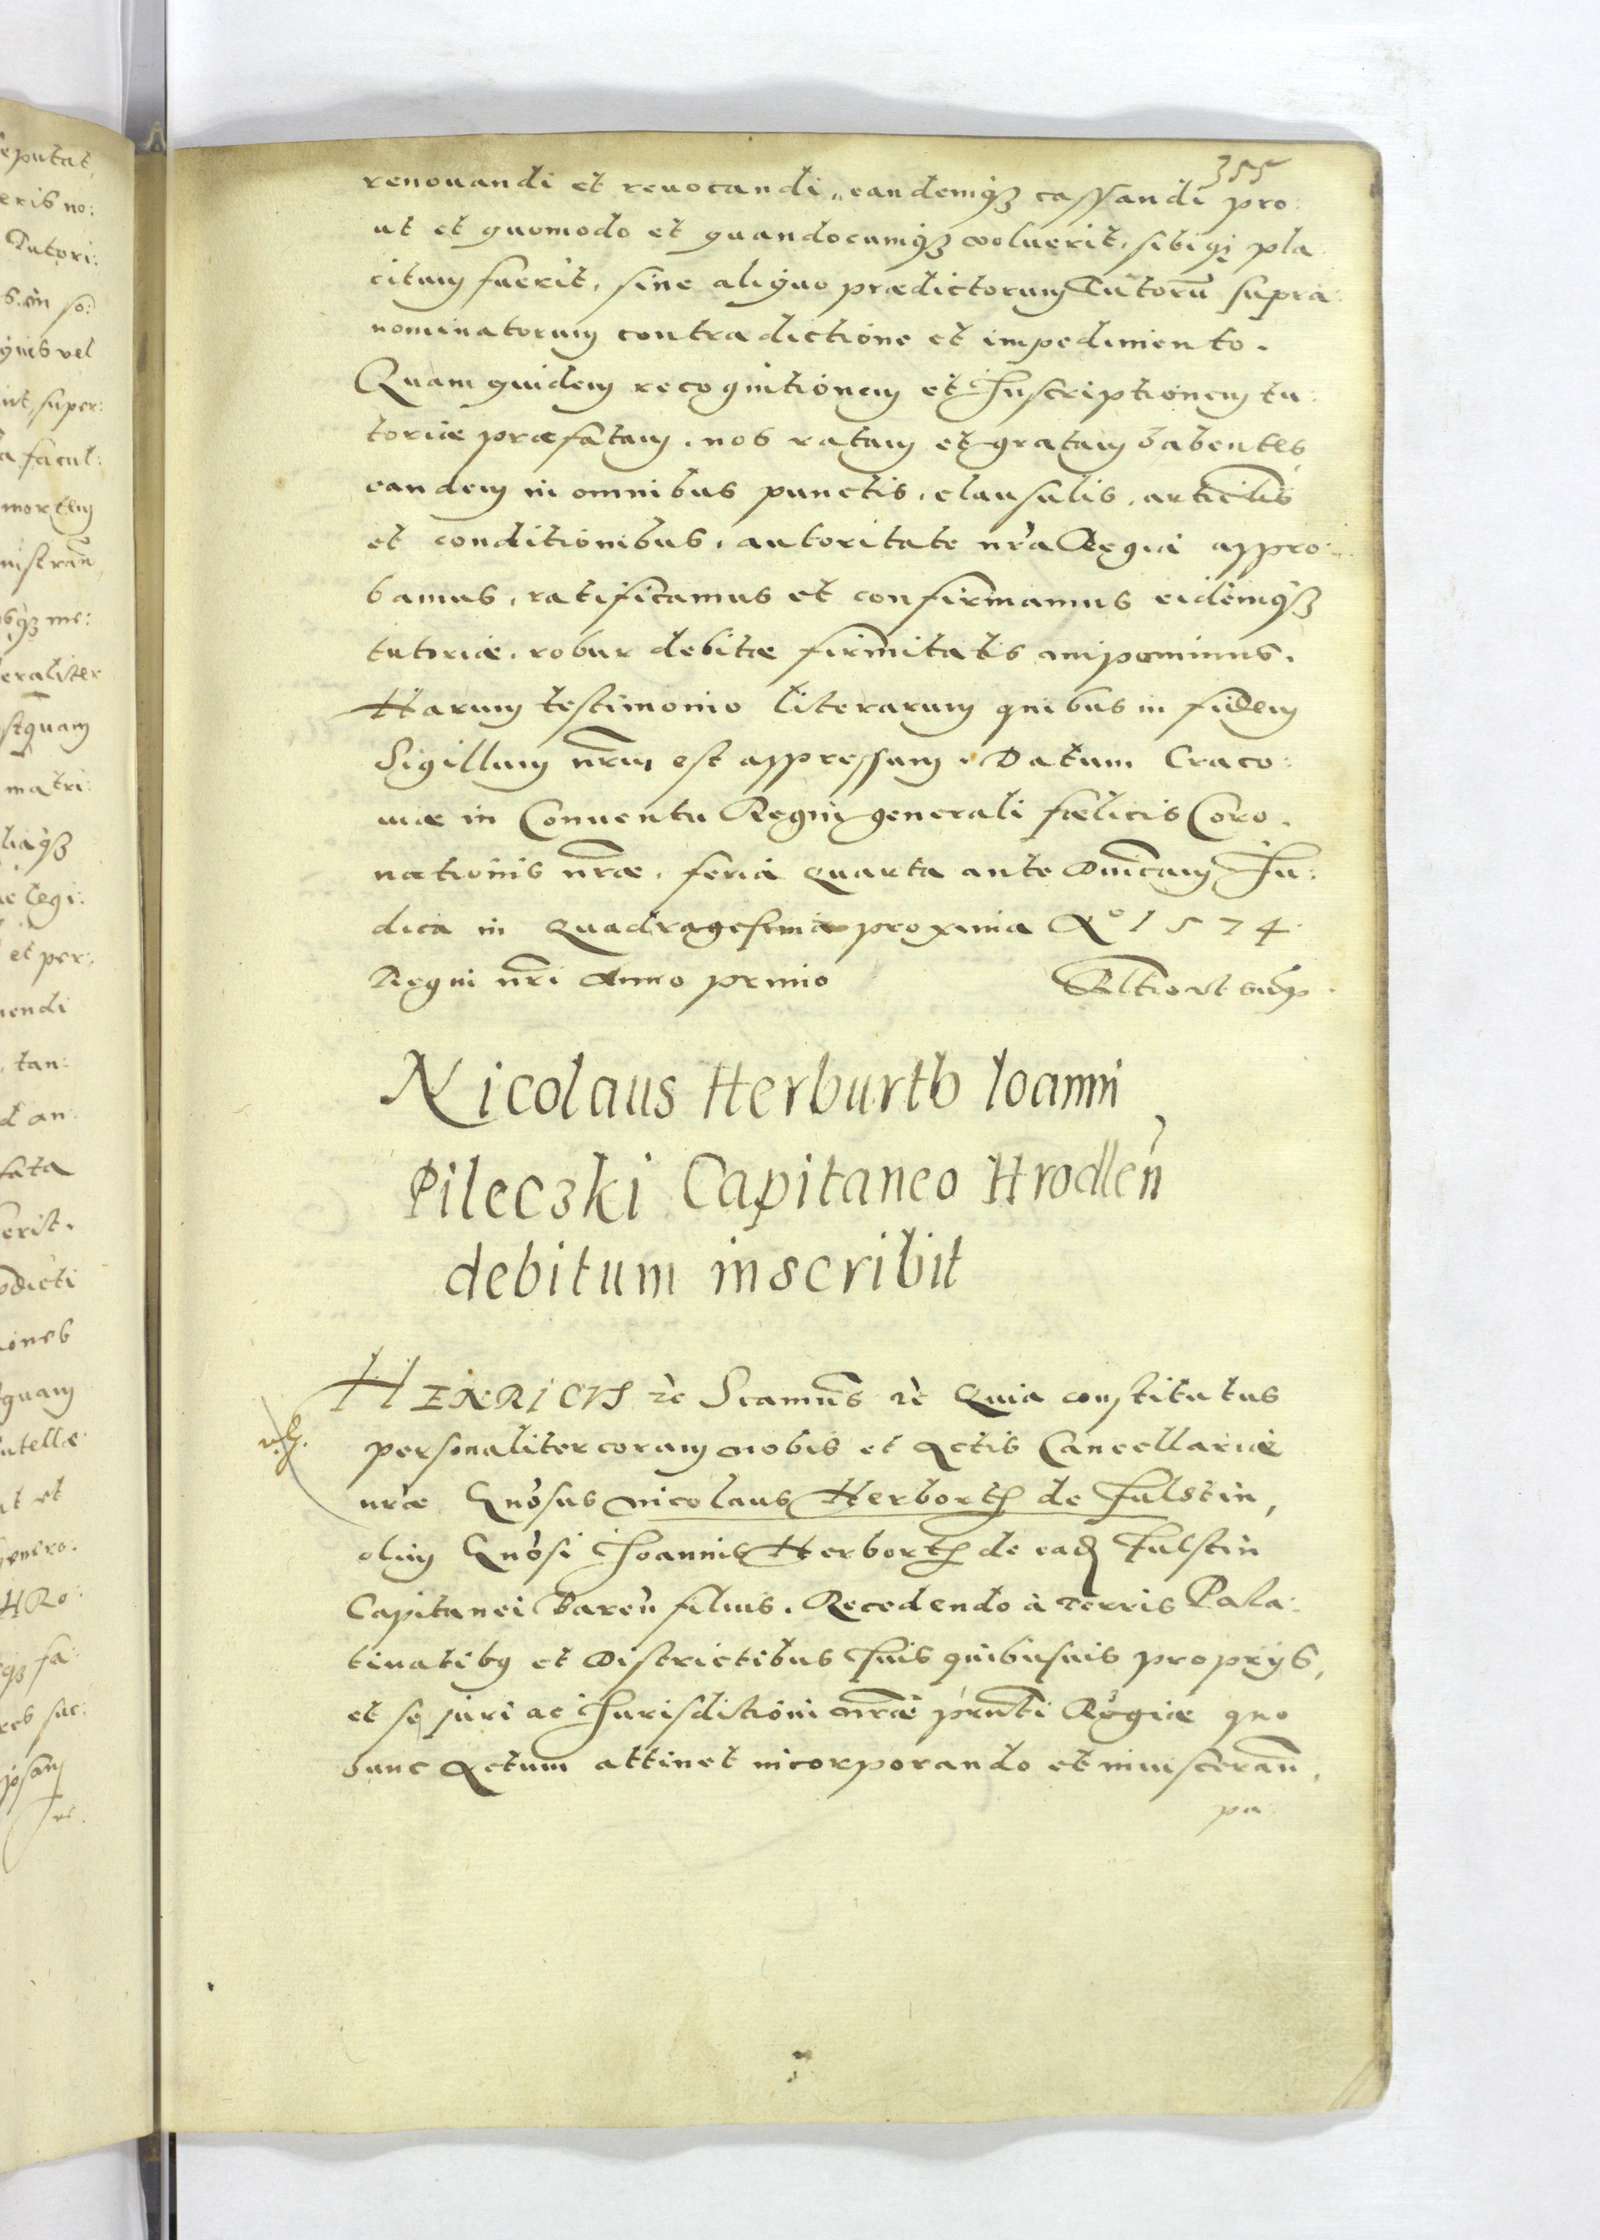 355
renouandi et reuocandi, eandemq₃ cassandi pro:
ut et quomodo et quandocumq₃ voluerit, sibiq₃ pla
citum fuerit, sine aliquo prædictorum Tutorũ supra:
nominatorum contradictione et impedimento.
Quam quidem recognitionem et Inscriptionem tu:
toriæ præfatam, nos ratam et gratam habentes,
eandem in omnibus punctis, clausulis, articulis
et conditionibus, autoritate nrã Regia appro:
bamus, ratificamus et confirmamus eidemq₃
tutoriæ, robur debitæ firmitatis imponimus.
Harum testimonio literarum quibus in fidem
Sigillum nrm̃ est appressum. Datum Craco:
uiæ in Conuentu Regni generali fœlicis Coro.
nationis nrãe, feria quarta ante Dnĩcam Iu:
dica in Quadragesima proxima Aº 1574.
Regni nrĩ Anno primo
Nicolaus Herburth Ioanni
Pileczki Capitaneo Hrodleñ
debitum inscribit
HENRICVS &c Scamus &c Quia constitutus
personaliter coram nobis et Actis Cancellariæ
nrãe Gnõsus Nicolaus Herborth de Fulstin,
olim Gnõsi Ioannis Herborth de ead Fulstin
Capitanei Bareñ filius. Recedendo à Terris Pala:
tinatibus et Districtibus suis quibusuis proprijs,
et se juri ac Iurisditioni nrãe prñti Regiæ quo
hunc Actum attinet incorporando et inuiscerañ,
pu
eputat,
eris no:
Tutori:
so:
vel
super:
facul:
mortem
me:
eraliter
matri:
legi:
et per:
endi
tan:
an:
fata
erit.
dicti
iones
quam
utellæ
et
enero:
HRo:
fa:
suc: